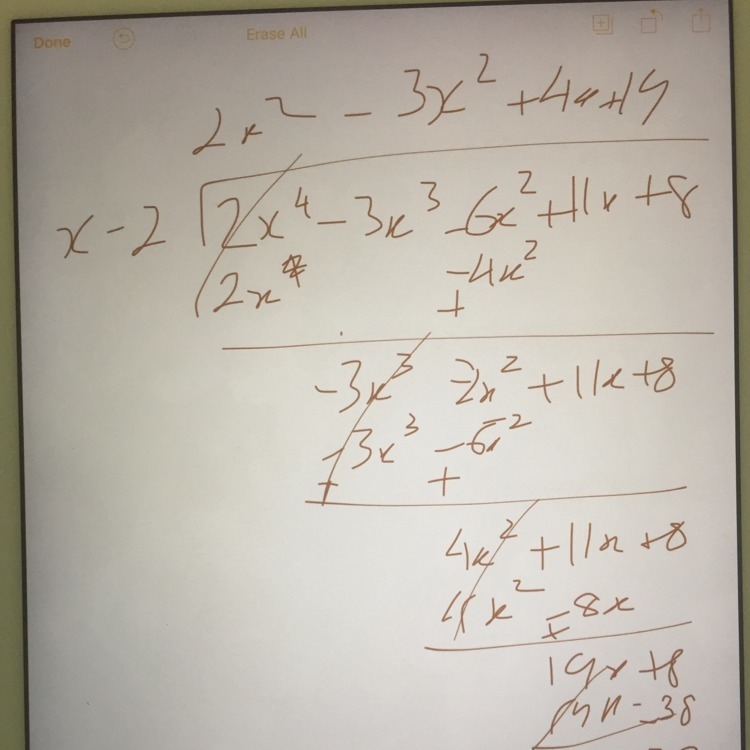 Done
Erase All
2x² - 3x² + 4x + 19
x - 2 2x⁴ - 3x³ - 6x² + 11x + 8
2x⁴ - 4x²
+
-3x³ -2x² + 11x + 8
-3x³ - 6x²
+ +
4x² + 11x + 8
4x² - 8x
+
19x + 8
19x - 38